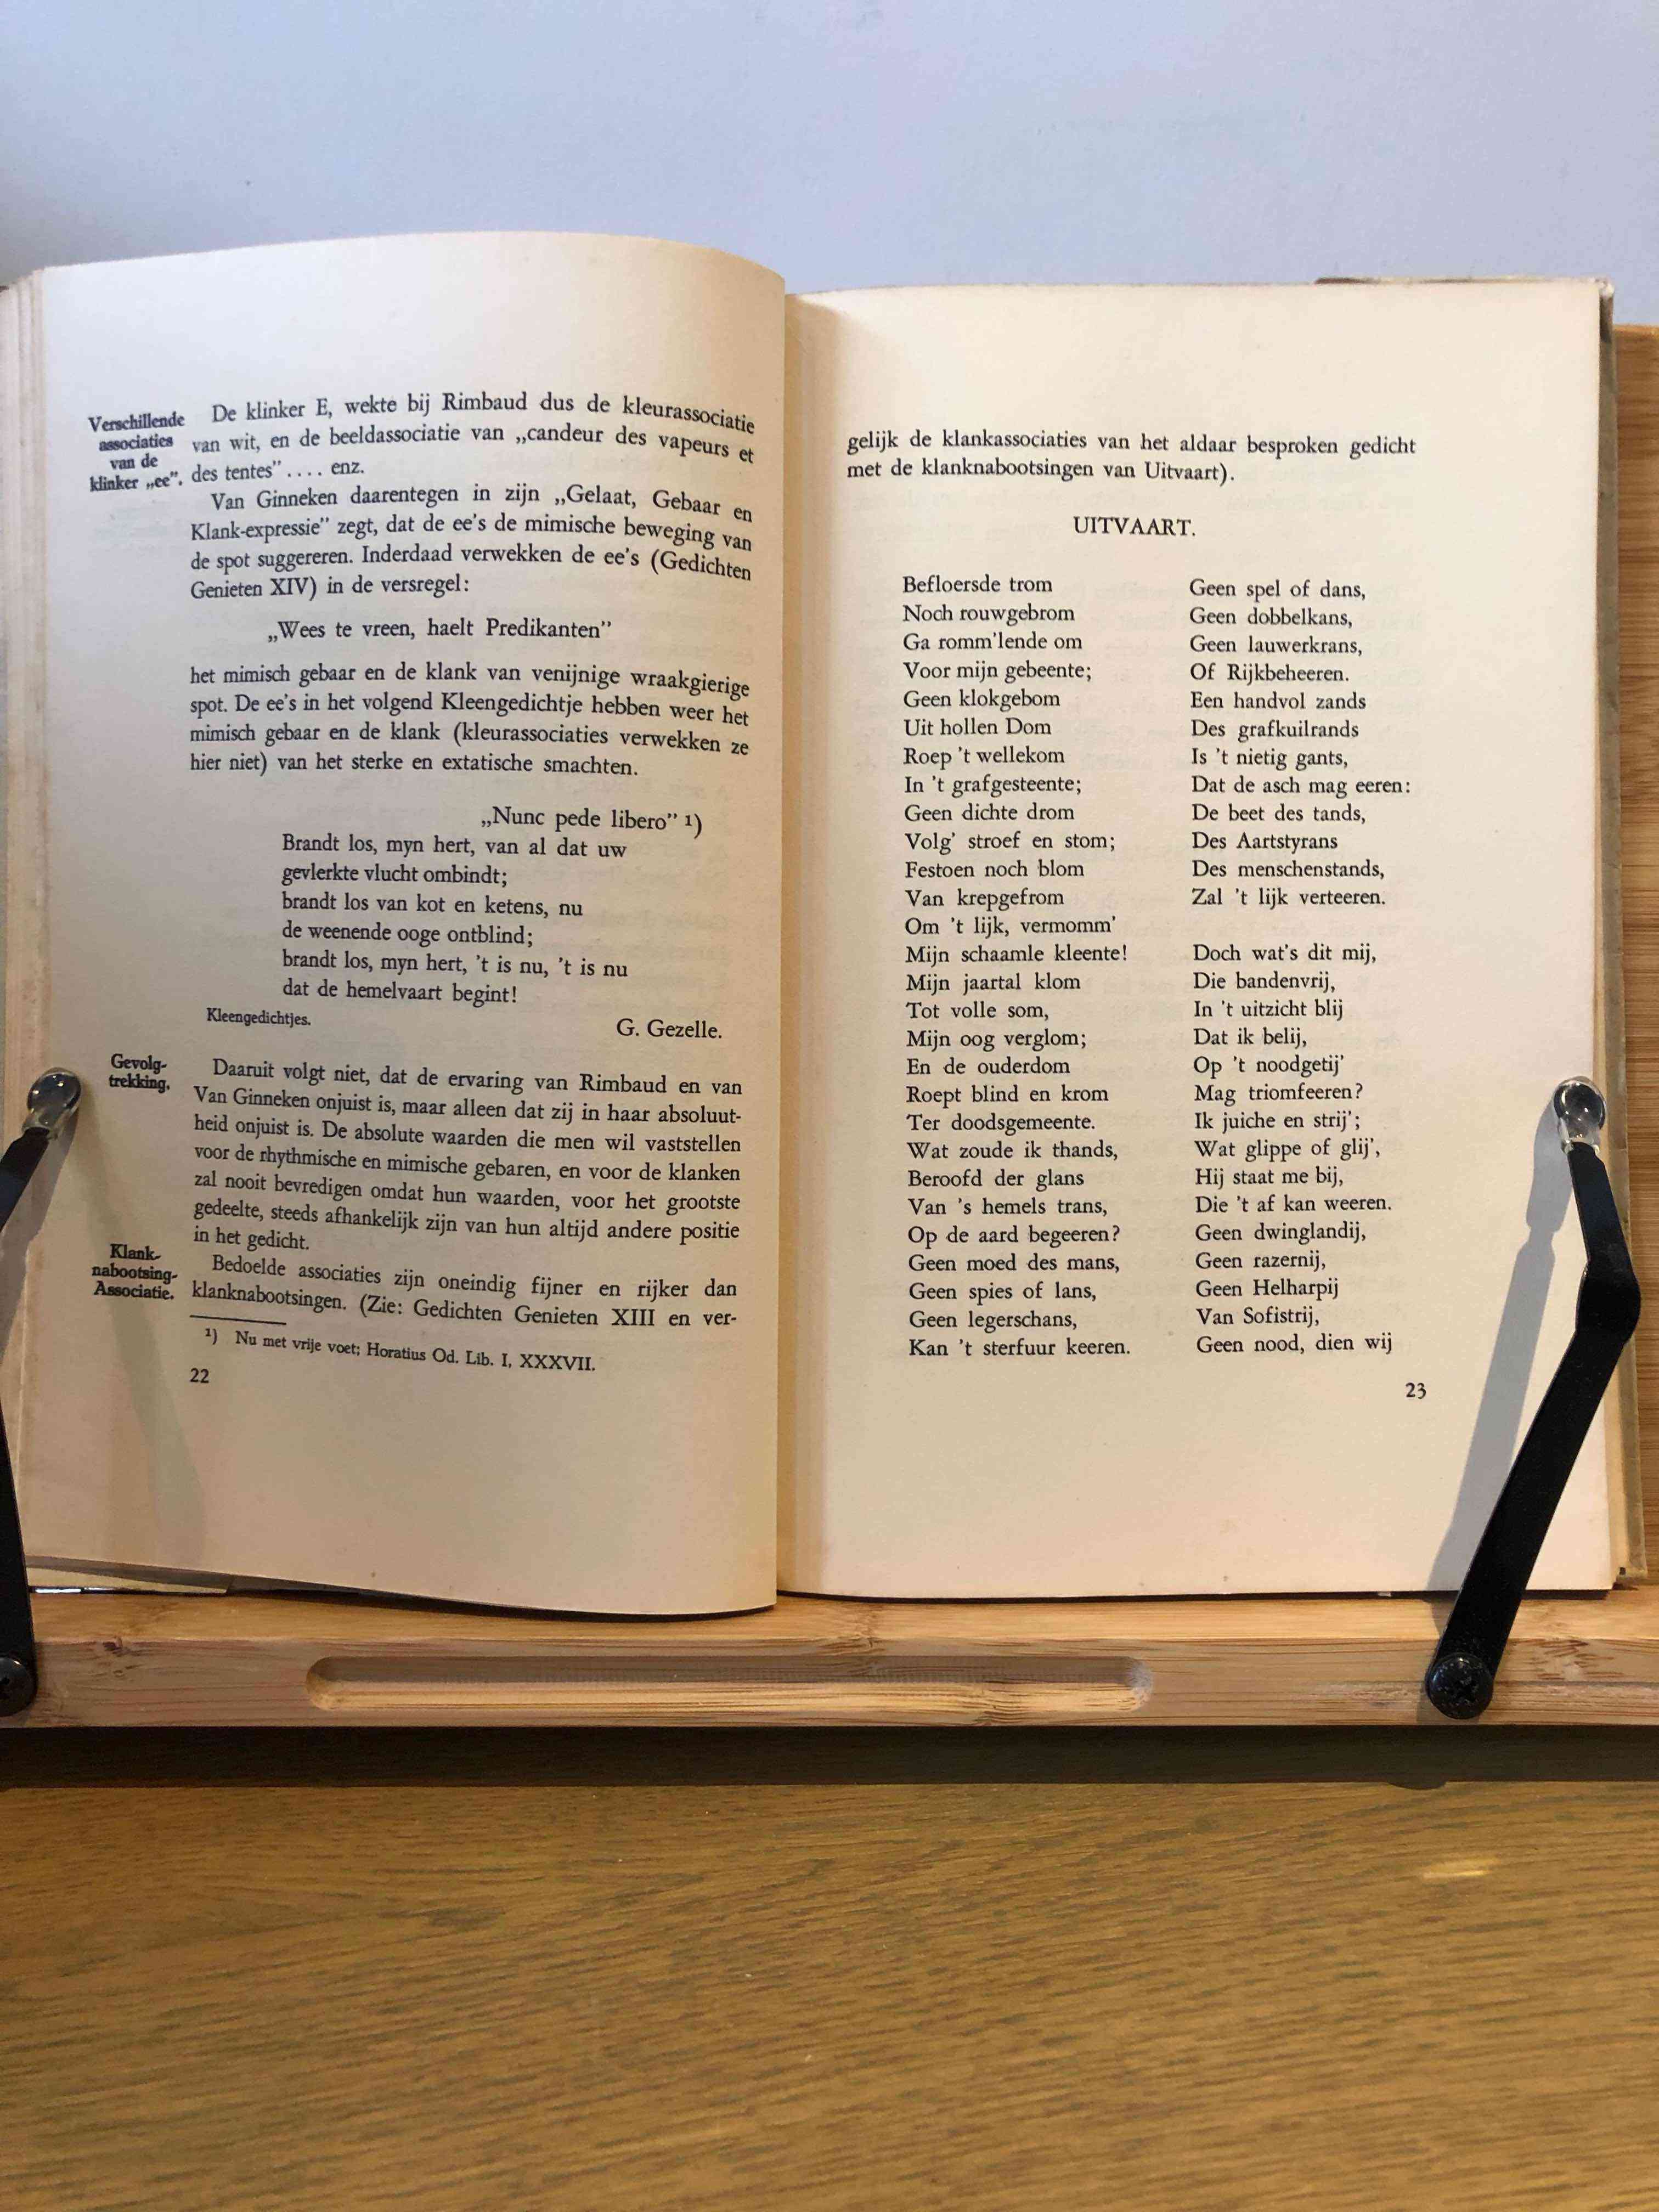 Verschillende
associaties
van de
klinker „ee".
De klinker E, wekte bij Rimbaud dus de kleurassociatie
van wit, en de beeldassociatie van „candeur des vapeurs et
des tentes” .... enz.
Van Ginneken daarentegen in zijn „Gelaat, Gebaar en
Klank-expressie” zegt, dat de ee's de mimische beweging van
de spot suggereren. Inderdaad verwekken de ee's (Gedichten
Genieten XIV) in de versregel:
„Wees te vreen, haelt Predikanten”
het mimisch gebaar en de klank van venijnige wraakgierige
spot. De ee's in het volgend Kleengedichtje hebben weer het
mimisch gebaar en de klank (kleurassociaties verwekken ze
hier niet) van het sterke en extatische smachten.
„Nunc pede libero” 1)
Brandt los, myn hert, van al dat uw
gevlerkte vlucht ombindt;
brandt los van kot en ketens, nu
de weenende ooge ontblind;
brandt los, myn hert, 't is nu, 't is nu
dat de hemelvaart begint!
Kleengedichtjes.
G. Gezelle.
Gevolg-
trekking.
Daaruit volgt niet, dat de ervaring van Rimbaud en van
Van Ginneken onjuist is, maar alleen dat zij in haar absoluut-
heid onjuist is. De absolute waarden die men wil vaststellen
voor de rhythmische en mimische gebaren, en voor de klanken
zal nooit bevredigen omdat hun waarden, voor het grootste
gedeelte, steeds afhankelijk zijn van hun altijd andere positie
in het gedicht.
Klank-
nabootsing-
Associatie.
Bedoelde associaties zijn oneindig fijner en rijker dan
klanknabootsingen. (Zie: Gedichten Genieten XIII en ver-
1) Nu met vrije voet; Horatius Od. Lib. I, XXXVII.
22
gelijk de klankassociaties van het aldaar besproken gedicht
met de klanknabootsingen van Uitvaart).
UITVAART.
Befloersde trom
Noch rouwgebrom
Ga romm'lende om
Voor mijn gebeente;
Geen klokgebom
Uit hollen Dom
Roep 't wellekom
In 't grafgesteente;
Geen dichte drom
Volg' stroef en stom;
Festoen noch blom
Van krepgefrom
Om 't lijk, vermomm'
Mijn schaamle kleente!
Mijn jaartal klom
Tot volle som,
Mijn oog verglom;
En de ouderdom
Roept blind en krom
Ter doodsgemeente.
Wat zoude ik thands,
Beroofd der glans
Van 's hemels trans,
Op de aard begeeren?
Geen moed des mans,
Geen spies of lans,
Geen legerschans,
Kan 't sterfuur keeren.
Geen spel of dans,
Geen dobbelkans,
Geen lauwerkrans,
Of Rijkbeheeren.
Een handvol zands
Des grafkuilrands
Is 't nietig gants,
Dat de asch mag eeren:
De beet des tands,
Des Aartstyrans
Des menschenstands,
Zal 't lijk verteeren.
Doch wat's dit mij,
Die bandenvrij,
In 't uitzicht blij
Dat ik belij,
Op 't noodgetij'
Mag triomfeeren?
Ik juiche en strij';
Wat glippe of glij',
Hij staat me bij,
Die 't af kan weeren.
Geen dwinglandij,
Geen razernij,
Geen Helharpij
Van Sofistrij,
Geen nood, dien wij
23